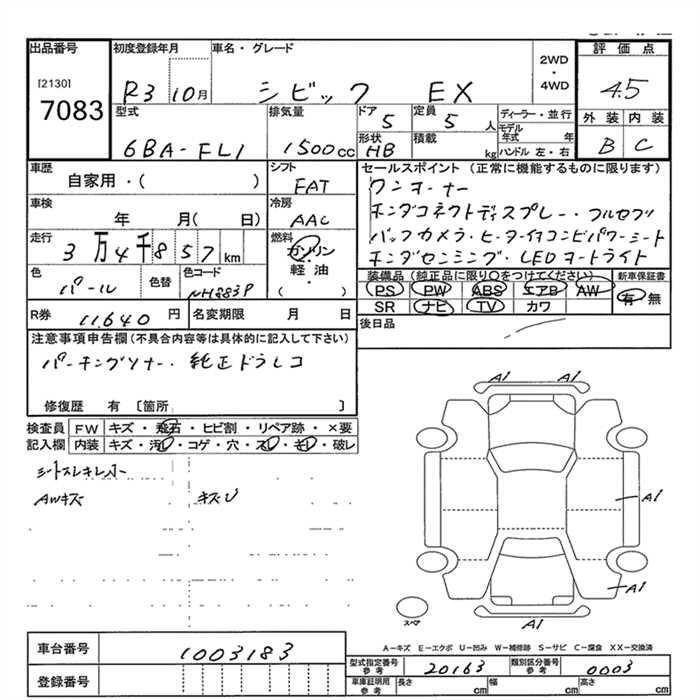 出品番号 初度登録年月 車名・グレード 2WD・4WD 評価点
[2130] 7083 R3 10月 シビック EX 4.5
型式 排気量 ドア 5 定員 5人 ディーラー・並行 外装 内装
6BA-FL1 1500cc 形状 HB 積載 kg モデル年式 年 ハンドル 左・右 B C
車歴 自家用・( ) シフト FAT セールスポイント(正常に機能するものに限ります)
車検 年 月( 日) 冷房 AAC ワンオーナー
ホンダコネクトディスプレー・フルセグ
走行 3万4千857km 燃料 ガソリン・軽油 ( ) バックカメラ・ヒーター付コンビパワーシート
ホンダセンシング・LEDオートライト
色 パール 色替 色コード NH883P 装備品(純正品に限り○をつけてください) 新車保証書
PS PW ABS エアB AW 有・無
SR ナビ TV カワ
R券 11,640円 名変期限 月 日 後日品
注意事項申告欄(不具合内容等は具体的に記入して下さい)
パーキングソナー・純正ドラレコ
修復歴 有 [箇所 ]
検査員 FW キズ・飛石・ヒビ割・リペア跡・×要
記入欄 内装 キズ・汚レ・コゲ・穴・スレ・モレ・破レ
AWキズ キズU
A1 A1
A1
A1
A1
スペア
A-キズ E-エクボ U-凹み W-補修跡 S-サビ C-腐食 XX-交換済
車台番号 1003183
型式指定番号 参考 20163 類別区分番号 参考 0003
登録番号 車庫証明用 参考 長さ cm 幅 cm 高さ cm